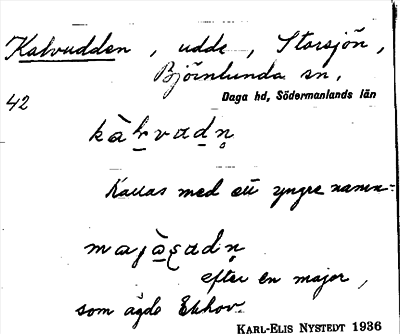 Kalvudden, udde, Storsjön,
Björnlunda sn,
42
Daga hd, Södermanlands län
kàlvudn̥
Kallas med ett yngre namn:
majàsudn̥
efter en major,
som ägde Ekhov.
KARL-ELIS NYSTEDT 1936